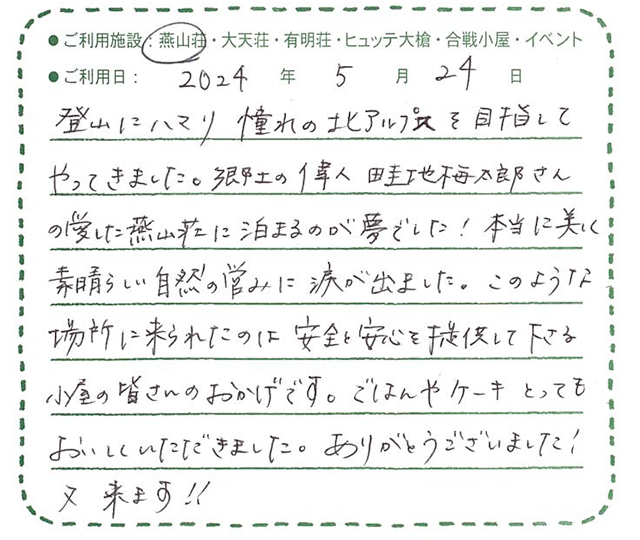 ●ご利用施設：燕山荘・大天荘・有明荘・ヒュッテ大槍・合戦小屋・イベント
●ご利用日： 2024 年 5 月 24 日
登山にハマり 憧れの北アルプスを目指して
やってきました。郷土の偉人 畦地梅太郎さん
の愛した燕山荘に泊まるのが夢でした！本当に美しく
素晴らしい自然の営みに涙が出ました。このような
場所に来られたのは安全と安心を提供して下さる
小屋の皆さんのおかげです。ごはんやケーキとっても
おいしくいただきました。ありがとうございました！
又来ます!!